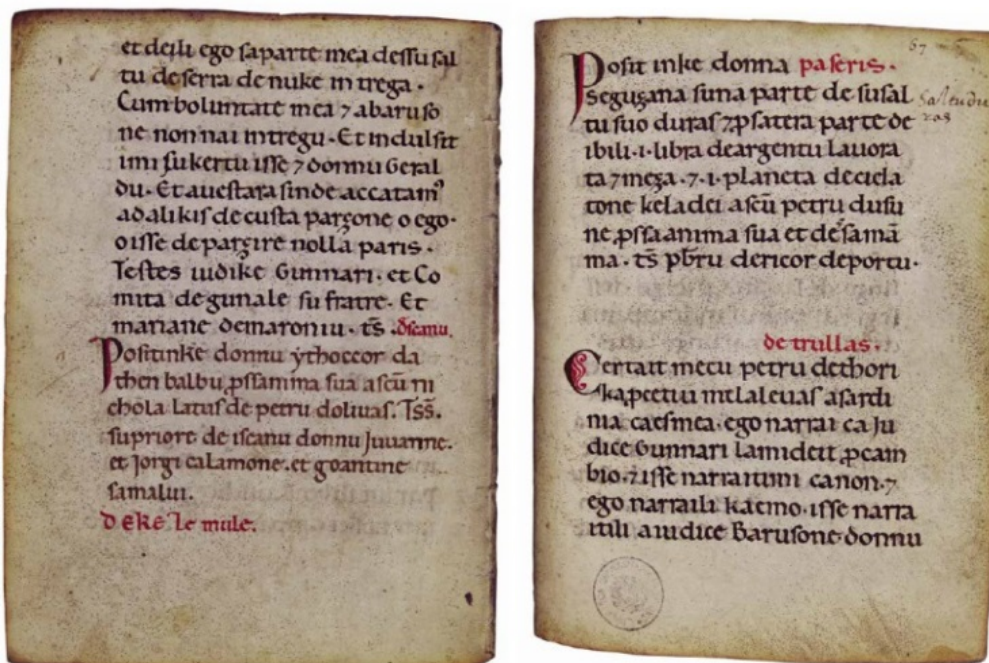 et deili ego saparte mea dessu sal
tu de serra de nuke in trega.
Cum boluntate mea ⁊ abaruso
ne non nai intregu. Et indulsit
imi su kertu isse ⁊ donnu Geral
du. Et auestara sinde accatamꝰ
adalikis de custa parzone o ego.
oisse deparzire nolla paris.
Testes iudike Gunnari. et Co
mita degunale su fratre. Et
mariane demaroniu. ts̄.
Positinke donnu ythoccor da
then balbu ꝓssanima sua ascū ni
chola latus de petru doliuas. Tss̄.
supriore de iscanu donnu Juuanne.
et Jorgi calamone. et goantine
samalui.
deKeLe mule.
67
Posit inke donna paseris.
Segusana suna parte de susal
tu suo duras ⁊ꝓsatera parte de
ibili. i. libra deargentu lauora
ta ⁊meza. ⁊. i. planeta decicla
tone keladei ascū petru dusu
ne ꝓssaanima sua et desamā
ma. ts̄ pb̄ru dericor deportu.
Saltu du
ras
de trullas.
Certait mecu petru dethori
kapeetiu mtlaleuas asardi
nia caesmea. ego narrai ca Ju
dice Gunnari lamideit ꝓcam
bio. ⁊isse narraitimi canon. ⁊
ego narraili kaemo. isse narra
itili aiudice Barusone donnu